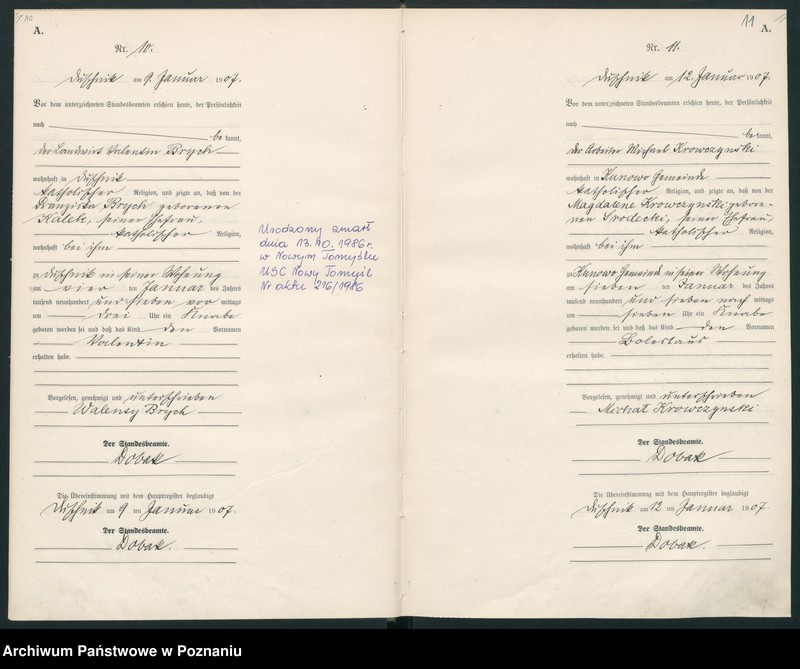 A.
Nr. 10.
Duschnik am 9. Januar 1907.
Vor dem unterzeichneten Standesbeamten erschien heute, der Persönlichkeit
nach
bekannt,
der Landwirt Valentin Brych
wohnhaft in Duschnik
katholischer Religion, und zeigte an, daß von der
Franziska Brych geborenen
Kalek, seiner Ehefrau,
katholischer Religion,
wohnhaft bei ihm
zu Duschnik in seiner Wohnung
am vier ten Januar des Jahres
tausend neunhundert und sieben vor mittags
um drei Uhr ein Knabe
geboren worden sei und daß das Kind den Vornamen
Valentin
erhalten habe.
Vorgelesen, genehmigt und unterschrieben
Walenty Brych
Der Standesbeamte.
Dobak
Die Übereinstimmung mit dem Hauptregister beglaubigt
Duschnik am 9 ten Januar 1907.
Der Standesbeamte.
Dobak.
Urodzony zmarł
dnia 13.10.1986r.
w Nowym Tomyślu
USC Nowy Tomyśl
Nr aktu 216/1986
11
A.
Nr. 11.
Duschnik am 12. Januar 1907.
Vor dem unterzeichneten Standesbeamten erschien heute, der Persönlichkeit
nach
bekannt,
der Arbeiter Michael Krowczynski
wohnhaft in Kunowo Gemeinde
katholischer Religion, und zeigte an, daß von der
Magdalene Krowczynski gebore-
nen Srodecki, seiner Ehefrau,
katholischer Religion,
wohnhaft bei ihm
zu Kunowo Gemeinde in seiner Wohnung
am sieben ten Januar des Jahres
tausend neunhundert und sieben nach mittags
um sieben Uhr ein Knabe
geboren worden sei und daß das Kind den Vornamen
Boleslaus
erhalten habe.
Vorgelesen, genehmigt und unterschrieben
Michał Krowczynski
Der Standesbeamte.
Dobak
Die Übereinstimmung mit dem Hauptregister beglaubigt
Duschnik am 12 ten Januar 1907.
Der Standesbeamte.
Dobak.
Archiwum Państwowe w Poznaniu